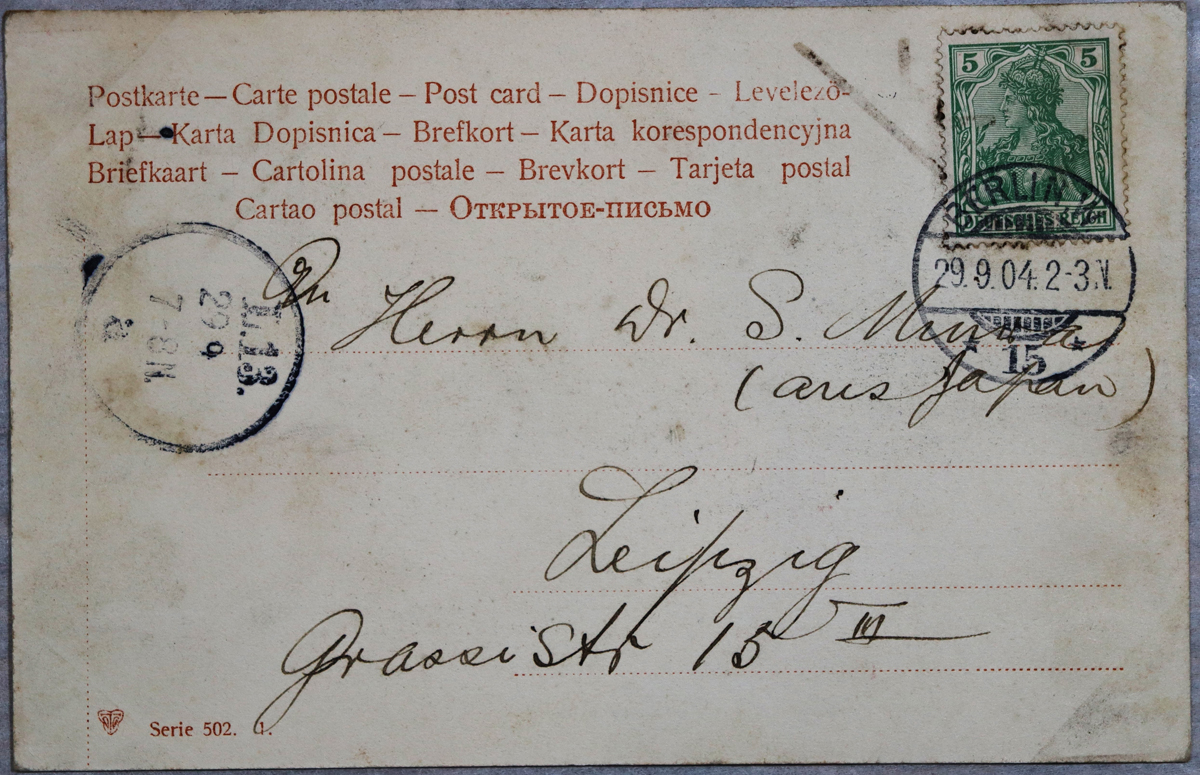 Postkarte — Carte postale — Post card — Dopisnice - Levelező-
Lap — Karta Dopisnica — Brefkort — Karta korespondencyjna
Briefkaart — Cartolina postale — Brevkort — Tarjeta postal
Cartao postal — Открытое-письмо
5 5
DEUTSCHES REICH
BERLIN W
29.9.04.2-3N.
* 15 *
L.13.
29 9
7-8N.
a
An
Herrn Dr. S.
(aus Japan)
Leipzig
Grassistr 15 III
Serie 502. 1.